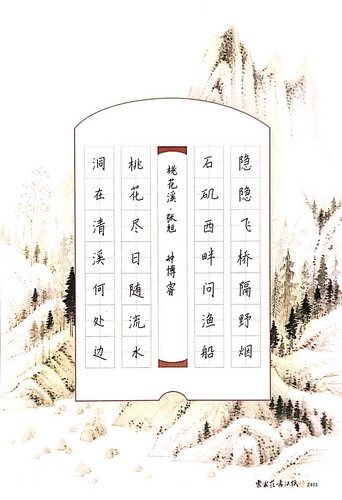 隐隐飞桥隔野烟
石矶西畔问渔船
桃花溪·张旭 钟博睿
桃花尽日随流水
洞在清溪何处边